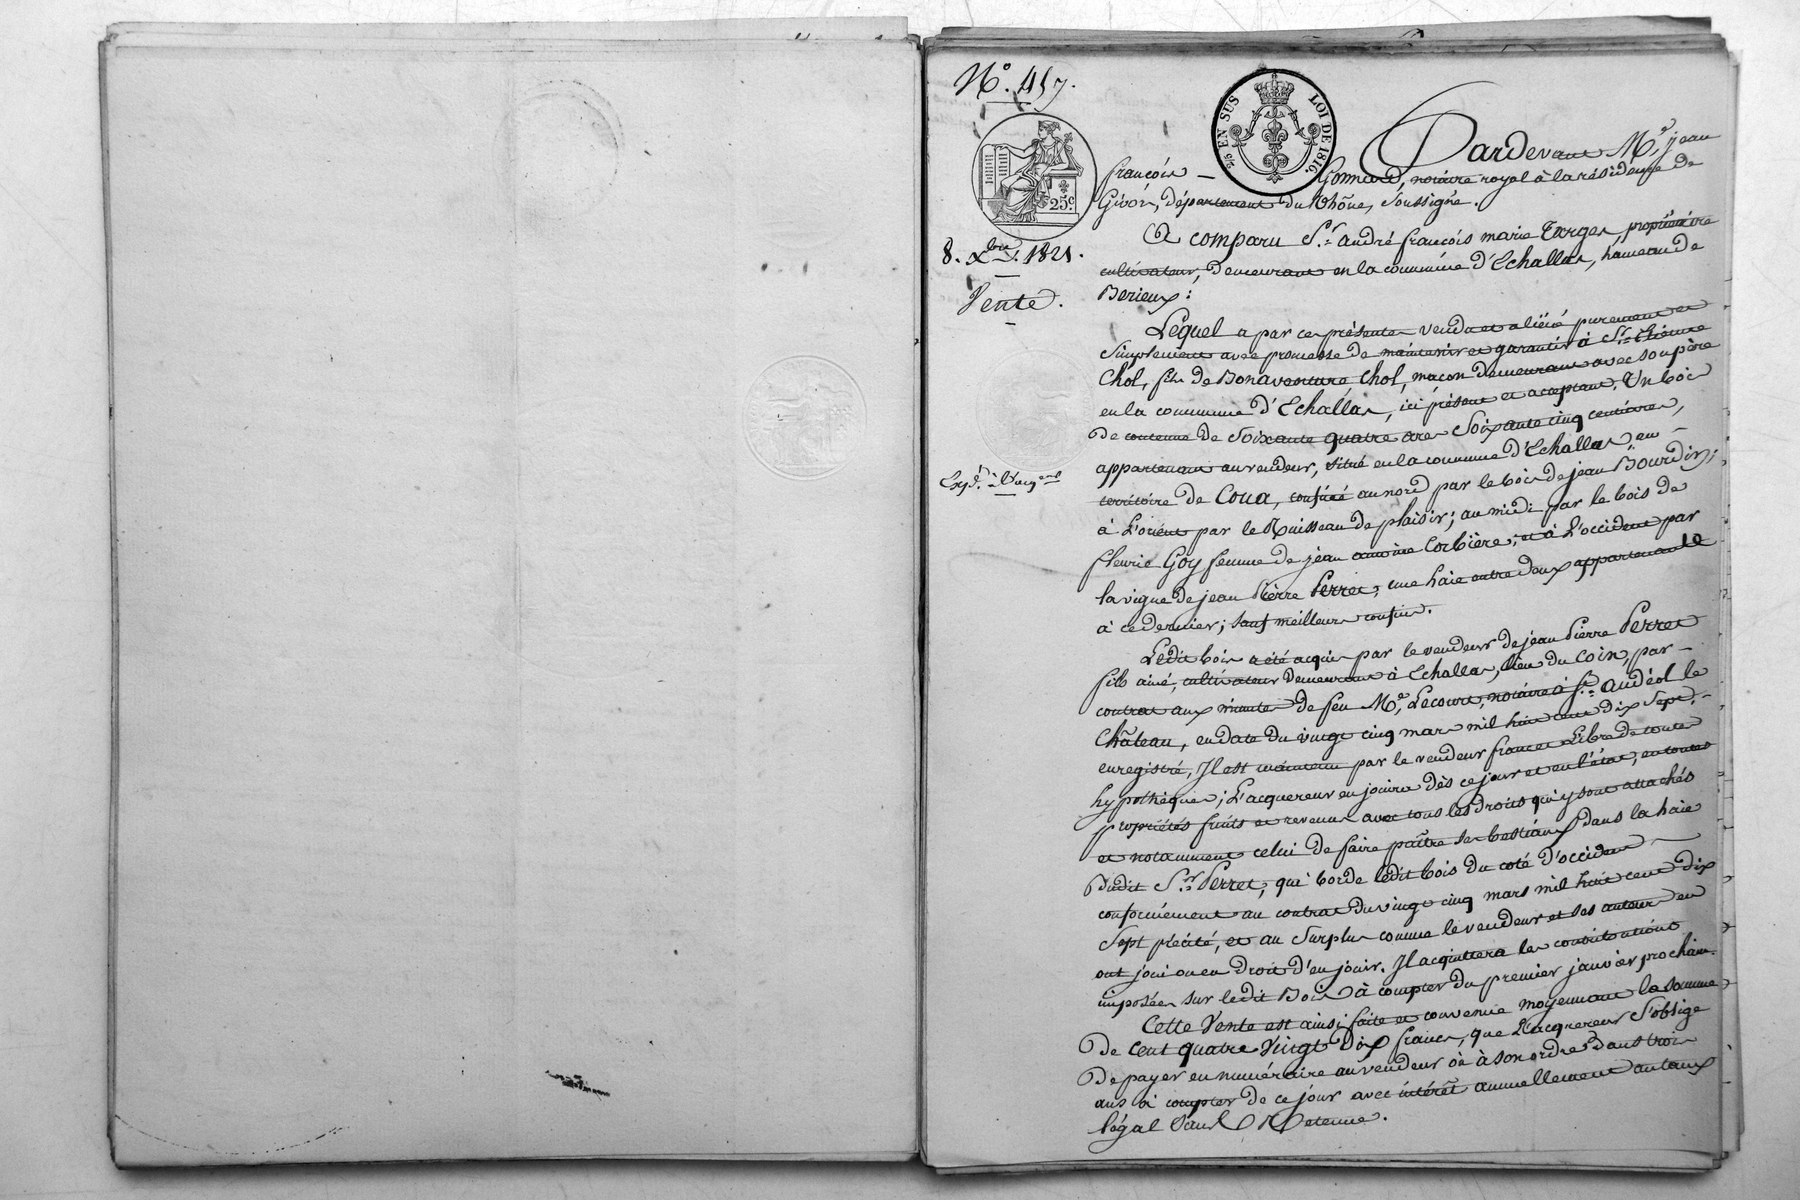 N.° 457.
EN SUS
LOI DE 1816.
Pardevant M.e jean
françois — Gonnard, notaire royal à la résidence de
Givors, département du Rhône, soussigné.
25.c
8. Xbre. 1821.
A comparu S.r andré françois marie Targes, propriétaire
cultivateur, demeurant en la commune d'Echallas, hameau de
Berieux:
Vente.
Lequel a par ces présentes vendu et aliéné purement et
simplement avec promesse de maintenir et garantir à S.r Etienne
Chol, fils de Bonaventure Chol, maçon demeurant avec son père
en la commune d'Echallas, ici présent et acceptant, Un bois
de contenue de soixante quatre ares soixante cinq centiares,
appartenant au vendeur, situé en la commune d'Echallas en —
Expd. à l'acq.eur
territoire de Coua, confiné au nord par le bois de jean Bourdin;
à l'orient par le Ruisseau de plaisir; au midi par le bois de
fleurie Goy femme de jean antoine Corbière; et à l'occident par
la vigne de jean Pierre Perret, une haie entre deux appartenante
à ce dernier; sauf meilleurs confins.
Ledit bois a été acquis par le vendeur de jean Pierre Perret
fils ainé, cultivateur demeurant à Echallas, lieu du Coin, par —
contrat aux minutes de feu M.e Lecourt, notaire à S.t andéol le
Château, en date du vingt cinq mars mil huit cent dix sept, —
enregistré, Il est maintenu par le vendeur franc et Libre de toute
hypothèque; L'acquereur en jouira dès ce jour et en l'état, en toutes
propriétés fruits et revenus avec tous les droits qui y sont attachés
et notamment celui de faire paître ses bestiaux dans la haie
dudit S.r Perret, qui borde ledit bois du coté d'occident —
conformément au contrat du vingt cinq mars mil huit cent dix
sept précité, et au surplus comme le vendeur et ses auteurs en
ont joui ou eu droit d'en jouir. Il acquittera les contributions
imposées sur ledit Bois à compter du premier janvier prochain.
Cette Vente est ainsi faite et convenue moyennant la somme
de cent quatre Vingt Dix francs, que L'acquereur S'oblige
de payer en numéraire au vendeur ou à son ordre dans trois
ans à compter de ce jour avec intérêt annuellement au taux
légal sans Retenue.